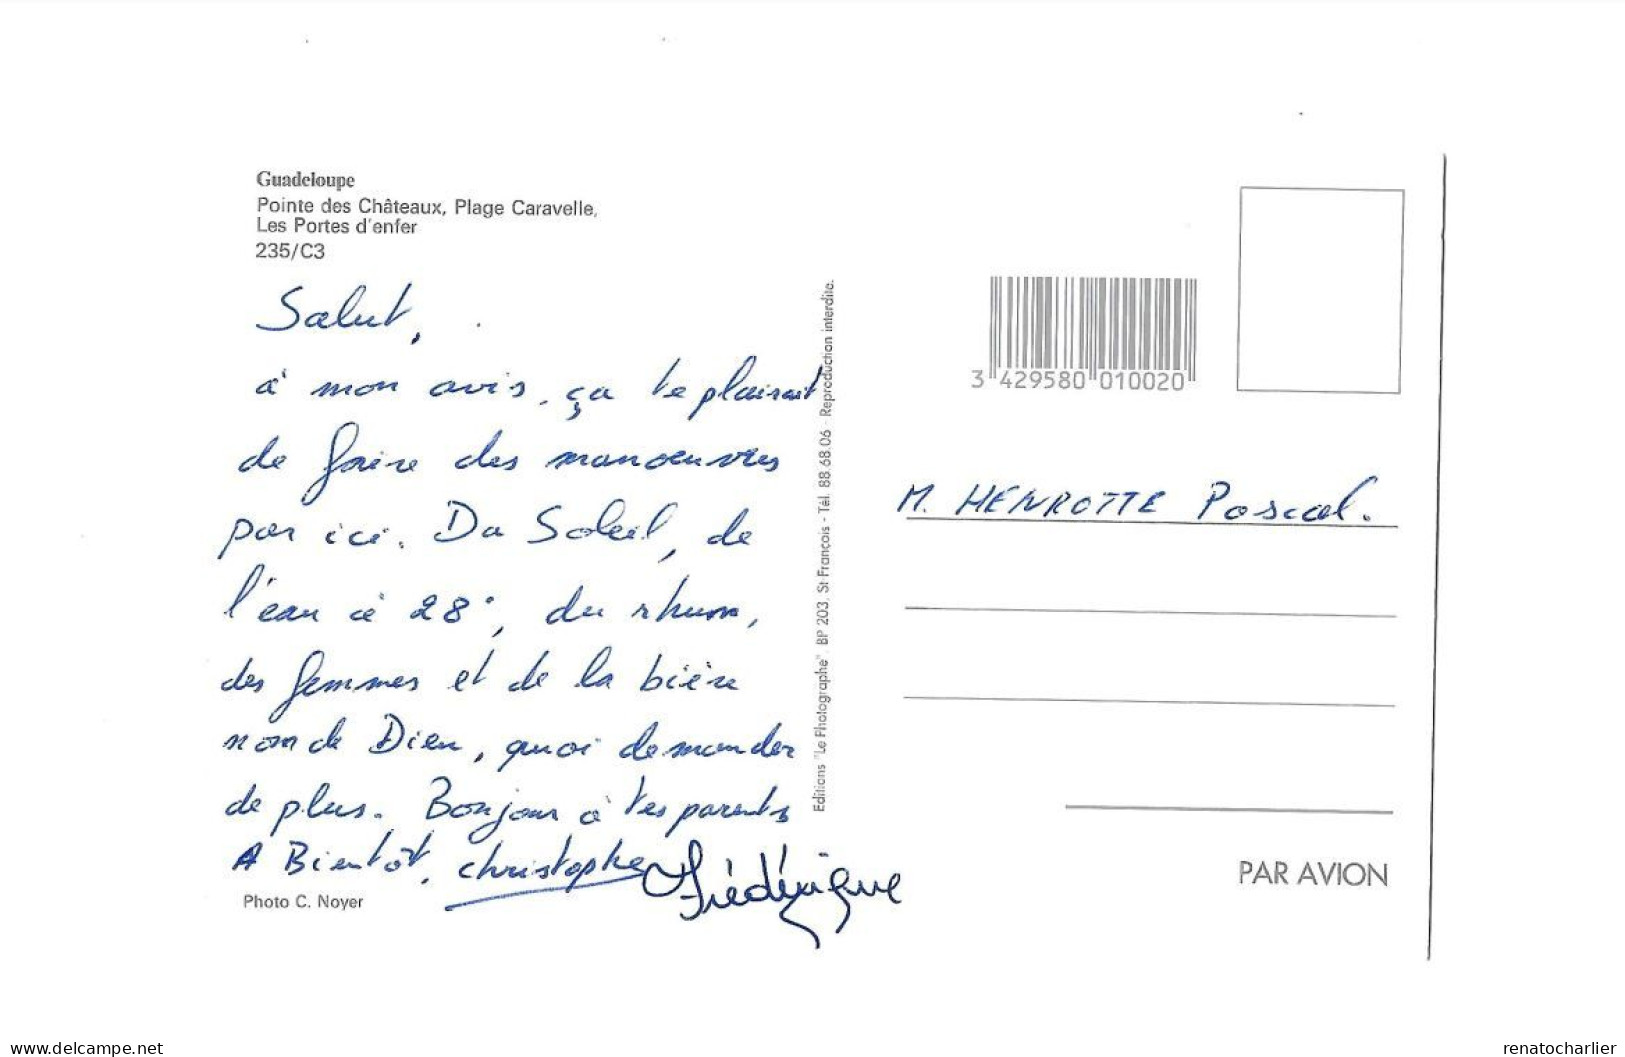 Guadeloupe
Pointe des Châteaux, Plage Caravelle,
Les Portes d'enfer
235/C3
Salut,
à mon avis, ça te plairait
de faire des manoeuvres
par ici. Du Soleil, de
l'eau à 28°, du rhum,
des femmes et de la bière
nom de Dieu, quoi demander
de plus. Bonjour à tes parents
A Bientôt, christophe Frédérique
Photo C. Noyer
Editions "Le Photographe". BP 203. St François - Tél. 88.68.06 - Reproduction interdite.
3 429580 010020
M. HENROTTE Pascal.
PAR AVION
delcampe.net
renatocharlier